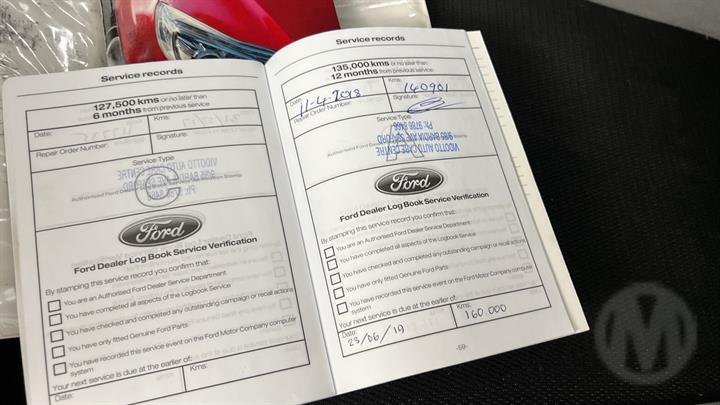 Service records
127,500 kms or no later than
6 months from previous service
Date:
Kms:
Repair Order Number:
Signature:
Service Type
VIDOTTO AUTO CARE CENTRE
Authorised Ford Dealer Service Organisation Stamp
Ford
Ford Dealer Log Book Service Verification
By stamping this service record you confirm that:
You are an Authorised Ford Dealer Service Department
You have completed all aspects of the Logbook Service
You have checked and completed any outstanding campaign or recall actions
You have only fitted Genuine Ford Parts
You have recorded this service event on the Ford Motor Company computer system
Your next service is due at the earlier of:
Date:
Kms:
Service records
135,000 kms or no later than
12 months from previous service
Date: 11-4-2018
Kms: 140901
Repair Order Number:
Signature:
A
VIDOTTO AUTO CARE CENTRE
Ford
Ford Dealer Log Book Service Verification
By stamping this service record you confirm that:
You are an Authorised Ford Dealer Service Department
You have completed all aspects of the Logbook Service
You have checked and completed any outstanding campaign or recall actions
You have only fitted Genuine Ford Parts
You have recorded this service event on the Ford Motor Company computer system
Your next service is due at the earlier of:
Date: 23/06/19
Kms: 160.000
-59-
M